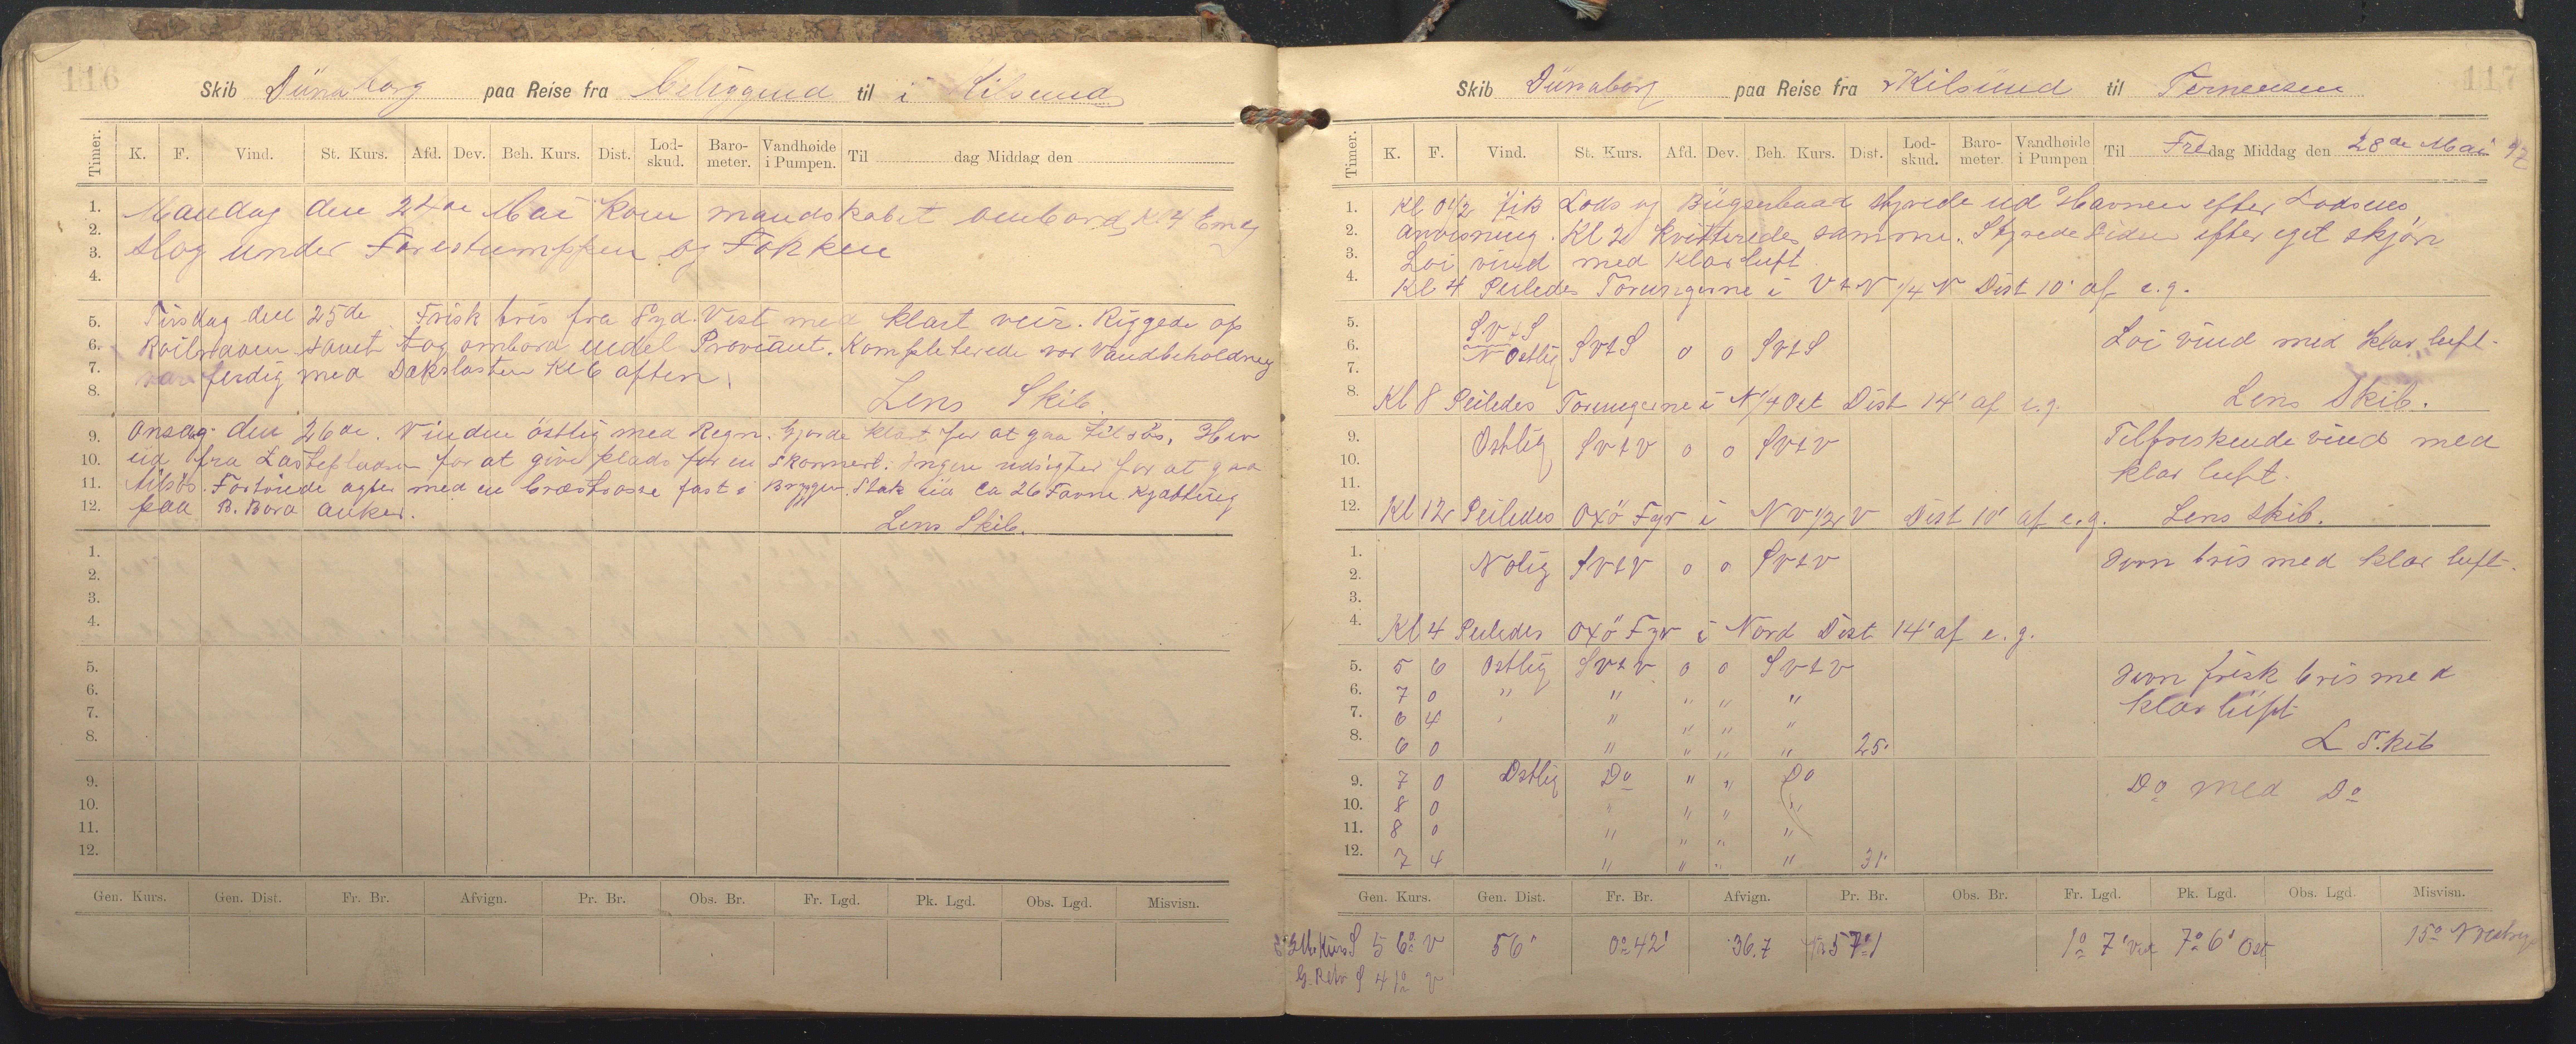 116
Skib Dünaborg paa Reise fra beliggend til i Kilsund
Timer. K. F. Vind. St. Kurs. Afd. Dev. Beh. Kurs. Dist. Lod-skud. Baro-meter. Vandhøide i Pumpen. Til dag Middag den
1. Mandag den 24de Mai kom mandskabet ombord, K. 4 Em
2. slog under Forestumppen og Fokken
3.
4.
5. Tirsdag den 25de Frisk bris fra Syd. Vest med klart veir. Riggede op
6. Roilraaen samt tog ombord endel Proviant. Kompleterede vor Vandbeholdning
7. var ferdig med Dækslasten Kl 6 aften.
8. Lens Skib.
9. Onsdag den 26de. Vinden östlig med Regn. Gjorde klart for at gaa tilsös. Hev
10. ud fra Lastepladsen for at give plads for en Skonnert. Ingen udsigter for at gaa
11. tilsös. Fortöiede agter med en trosse fast i Bryggen. Stak ud ca 26 Favne Kjætting
12. paa B. Bords anker. Lens Skib.
1.
2.
3.
4.
5.
6.
7.
8.
9.
10.
11.
12.
Gen. Kurs. Gen. Dist. Fr. Br. Afvign. Pr. Br. Obs. Br. Fr. Lgd. Pk. Lgd. Obs. Lgd. Misvisn.
117
Skib Dünaborg paa Reise fra Kilsund til Terneuzen
Timer. K. F. Vind. St. Kurs. Afd. Dev. Beh. Kurs. Dist. Lod-skud. Baro-meter. Vandhøide i Pumpen Til Fredag Middag den 28de Mai 97
1. Kl 0 1/2 fik Lods og Bügserbaad styrede ud Havnen efter Lodsens
2. anvisning. Kl 2 kvitteredes samme. Styrede siden efter eget skjön
3. Loi vind med klar luft
4. Kl 4 Peiledes Torungerne i V t N 1/4 N Dist 10' af e. g.
5. S.V t S
6. N Ostlig SVtS 0 0 SVtS Loi vind med klar luft.
7.
8. Kl 8 Peiledes Torungerne i N 1/4 Ost Dist 14' af e. g. Lens Skib.
9. Ostlig SVtV 0 0 SVtV Tilfriskende vind med
10. klar luft.
11.
12. Kl 12 Peiledes Oxö Fyr i NV 1/2 V Dist 10' af e. g. Lens Skib.
1. N Olig SVtV 0 0 SVtV Jevn bris med klar luft.
2.
3.
4. Kl 4 Peiledes Oxö Fyr i Nord Dist 14' af e. g.
5. 5 6 Ostlig SVtV 0 0 SVtV Jevn frisk bris med
6. 7 0 " " " " " klar luft
7. 6 4 " " " " "
8. 6 0 " " " " 25' L Skib
9. 7 0 Ostlig Do " " Do Do med Do
10. 8 0 " " " "
11. 8 0 " " " "
12. 7 4 " " " " 31'
Gen. Kurs. Gen. Dist. Fr. Br. Afvign. Pr. Br. Obs. Br. Fr. Lgd. Pk. Lgd. Obs. Lgd. Misvisn.
Kurs S 56° V 56' 0° 42' 36.7 57° 1 1° 7' Vest 7° 6' Ost 15° Vestlig
G. Retv S 41° V